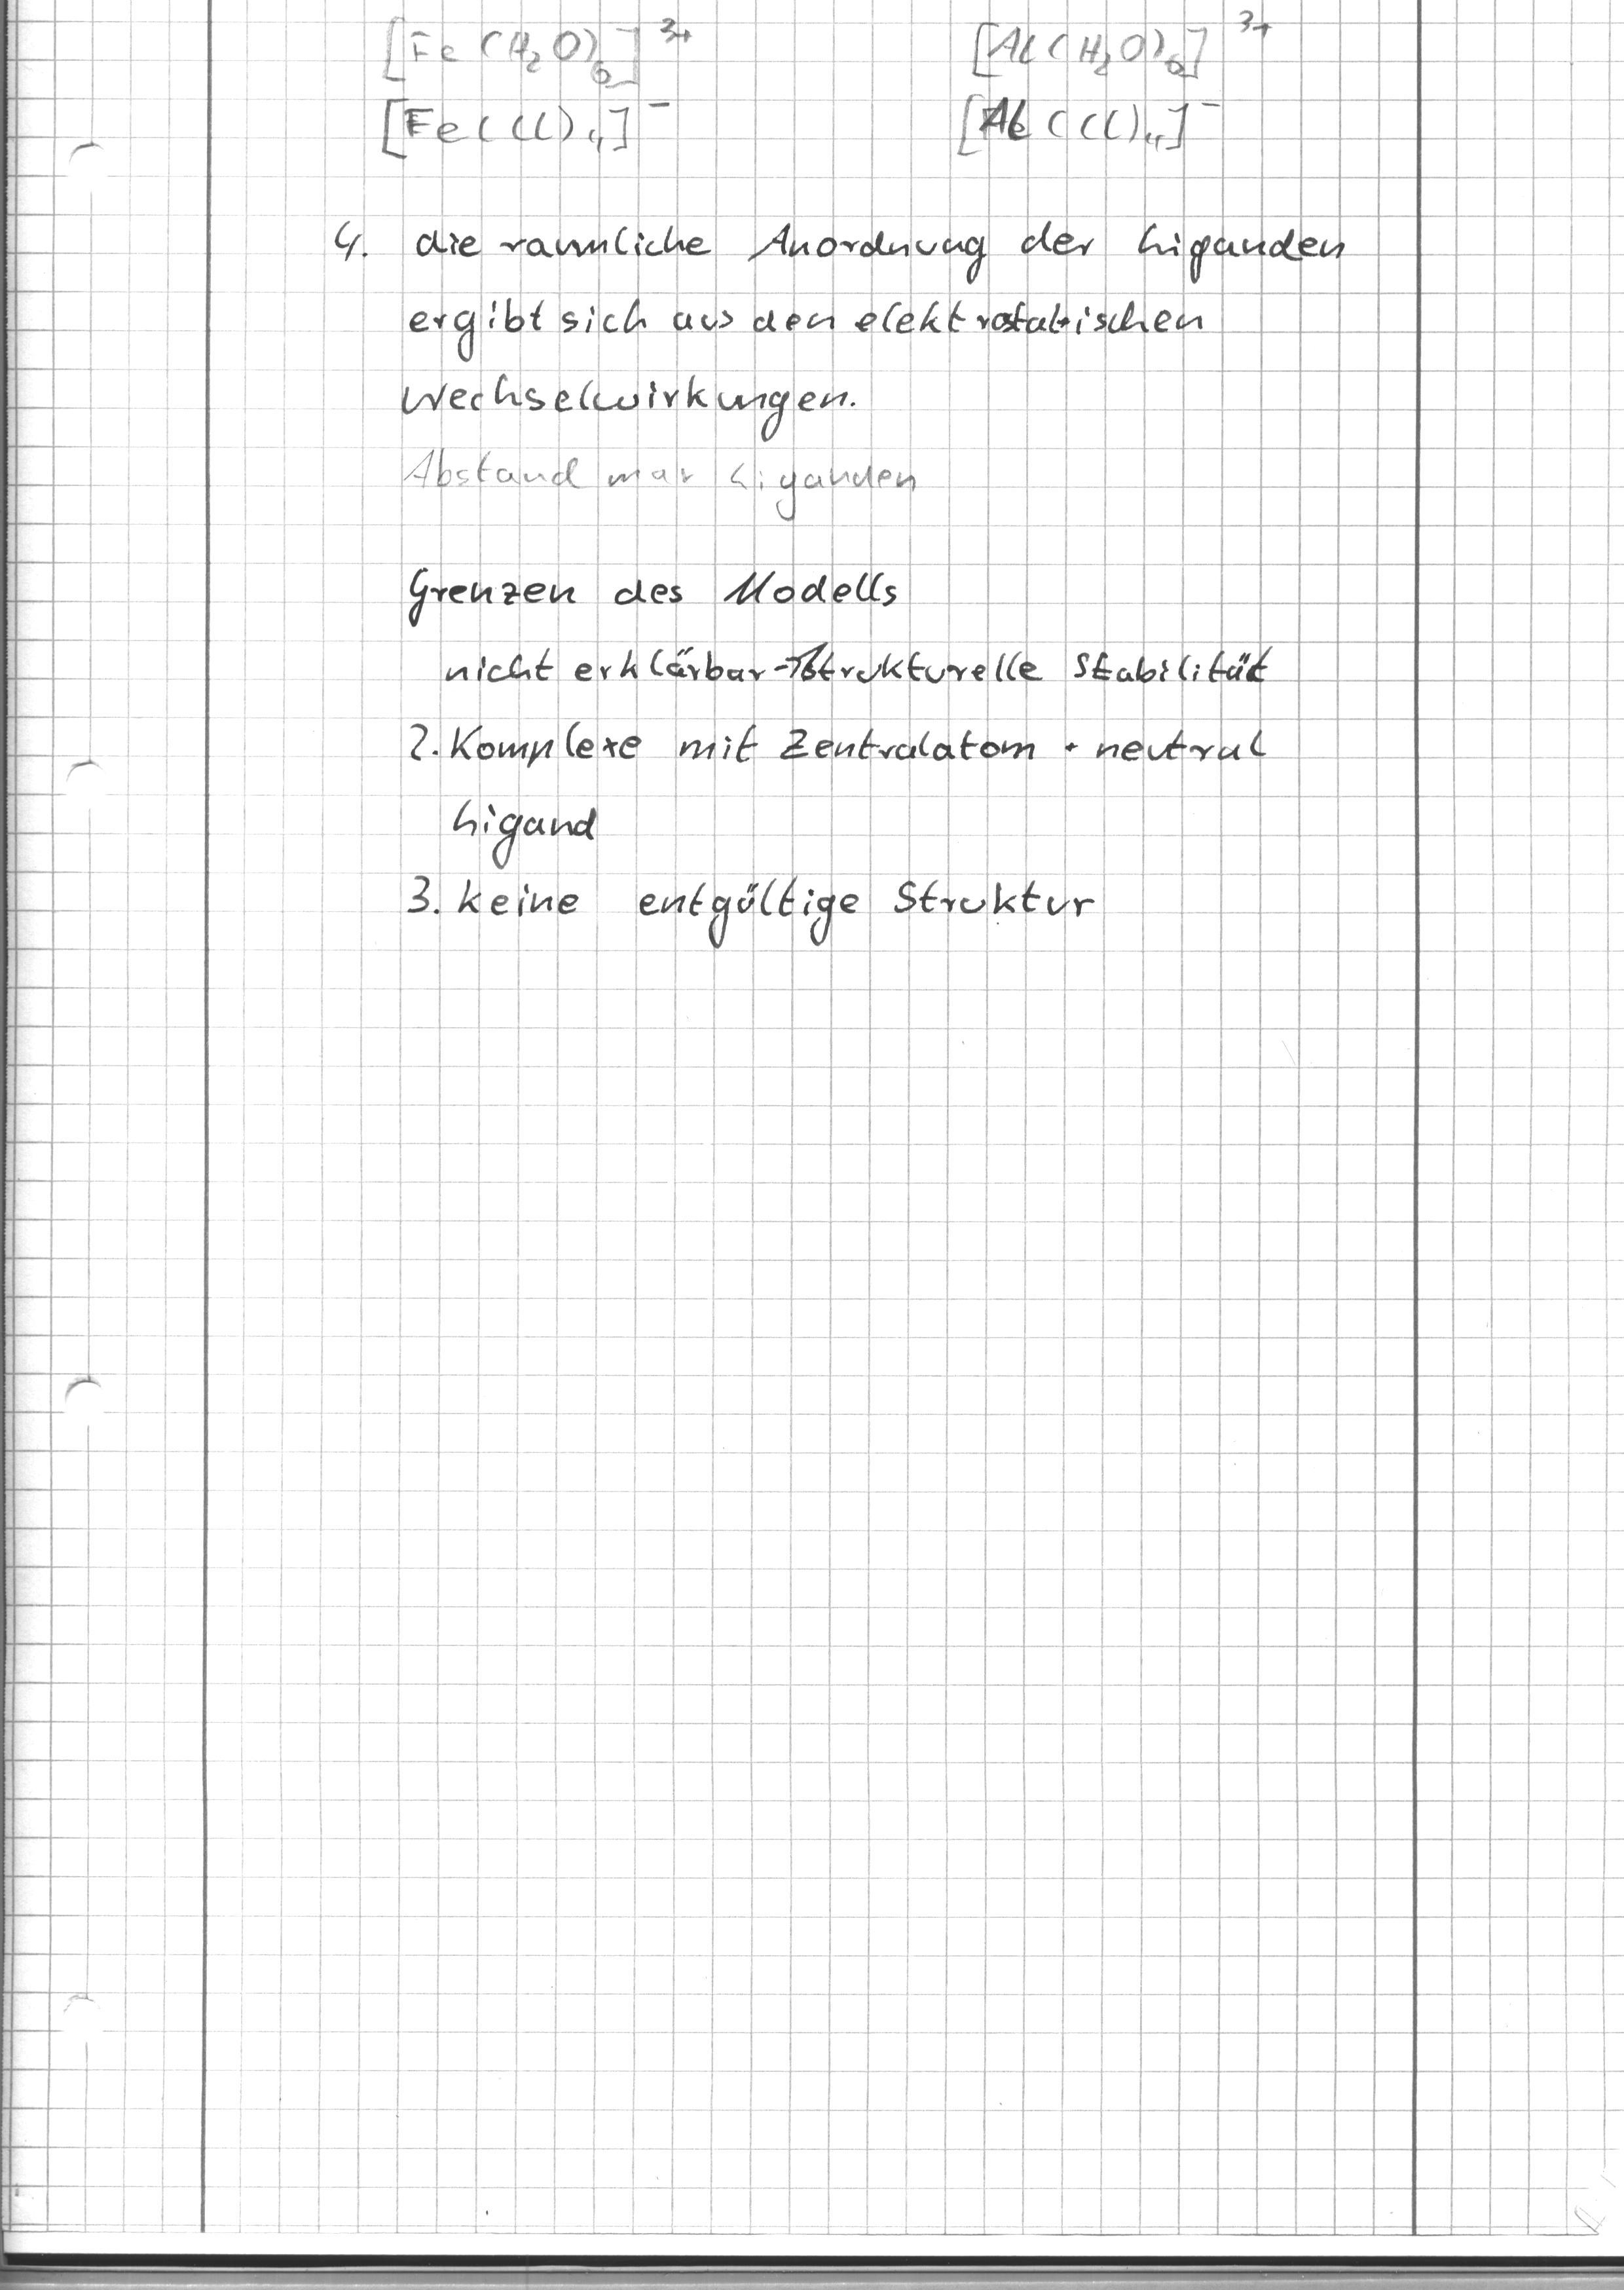 [Fe(H₂O)₆]³⁺ [Al(H₂O)₆]³⁺
[Fe(Cl)₄]⁻ [Al(Cl)₄]⁻
4. die raumliche Anordnung der Liganden
ergibt sich aus den elektrostatischen
Wechselwirkungen.
Abstand max Liganden
Grenzen des Modells
nicht erklärbar → strukturelle Stabilität
2. Komplexe mit Zentralatom + neutral
Ligand
3. keine entgültige Struktur